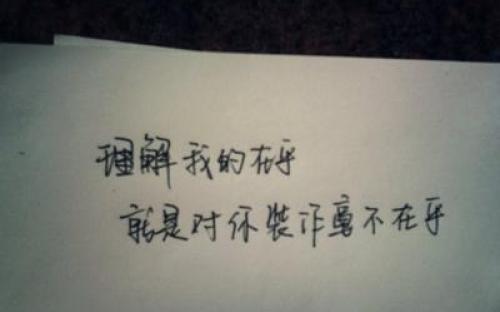 理解我的在乎
就是对你装作毫不在乎